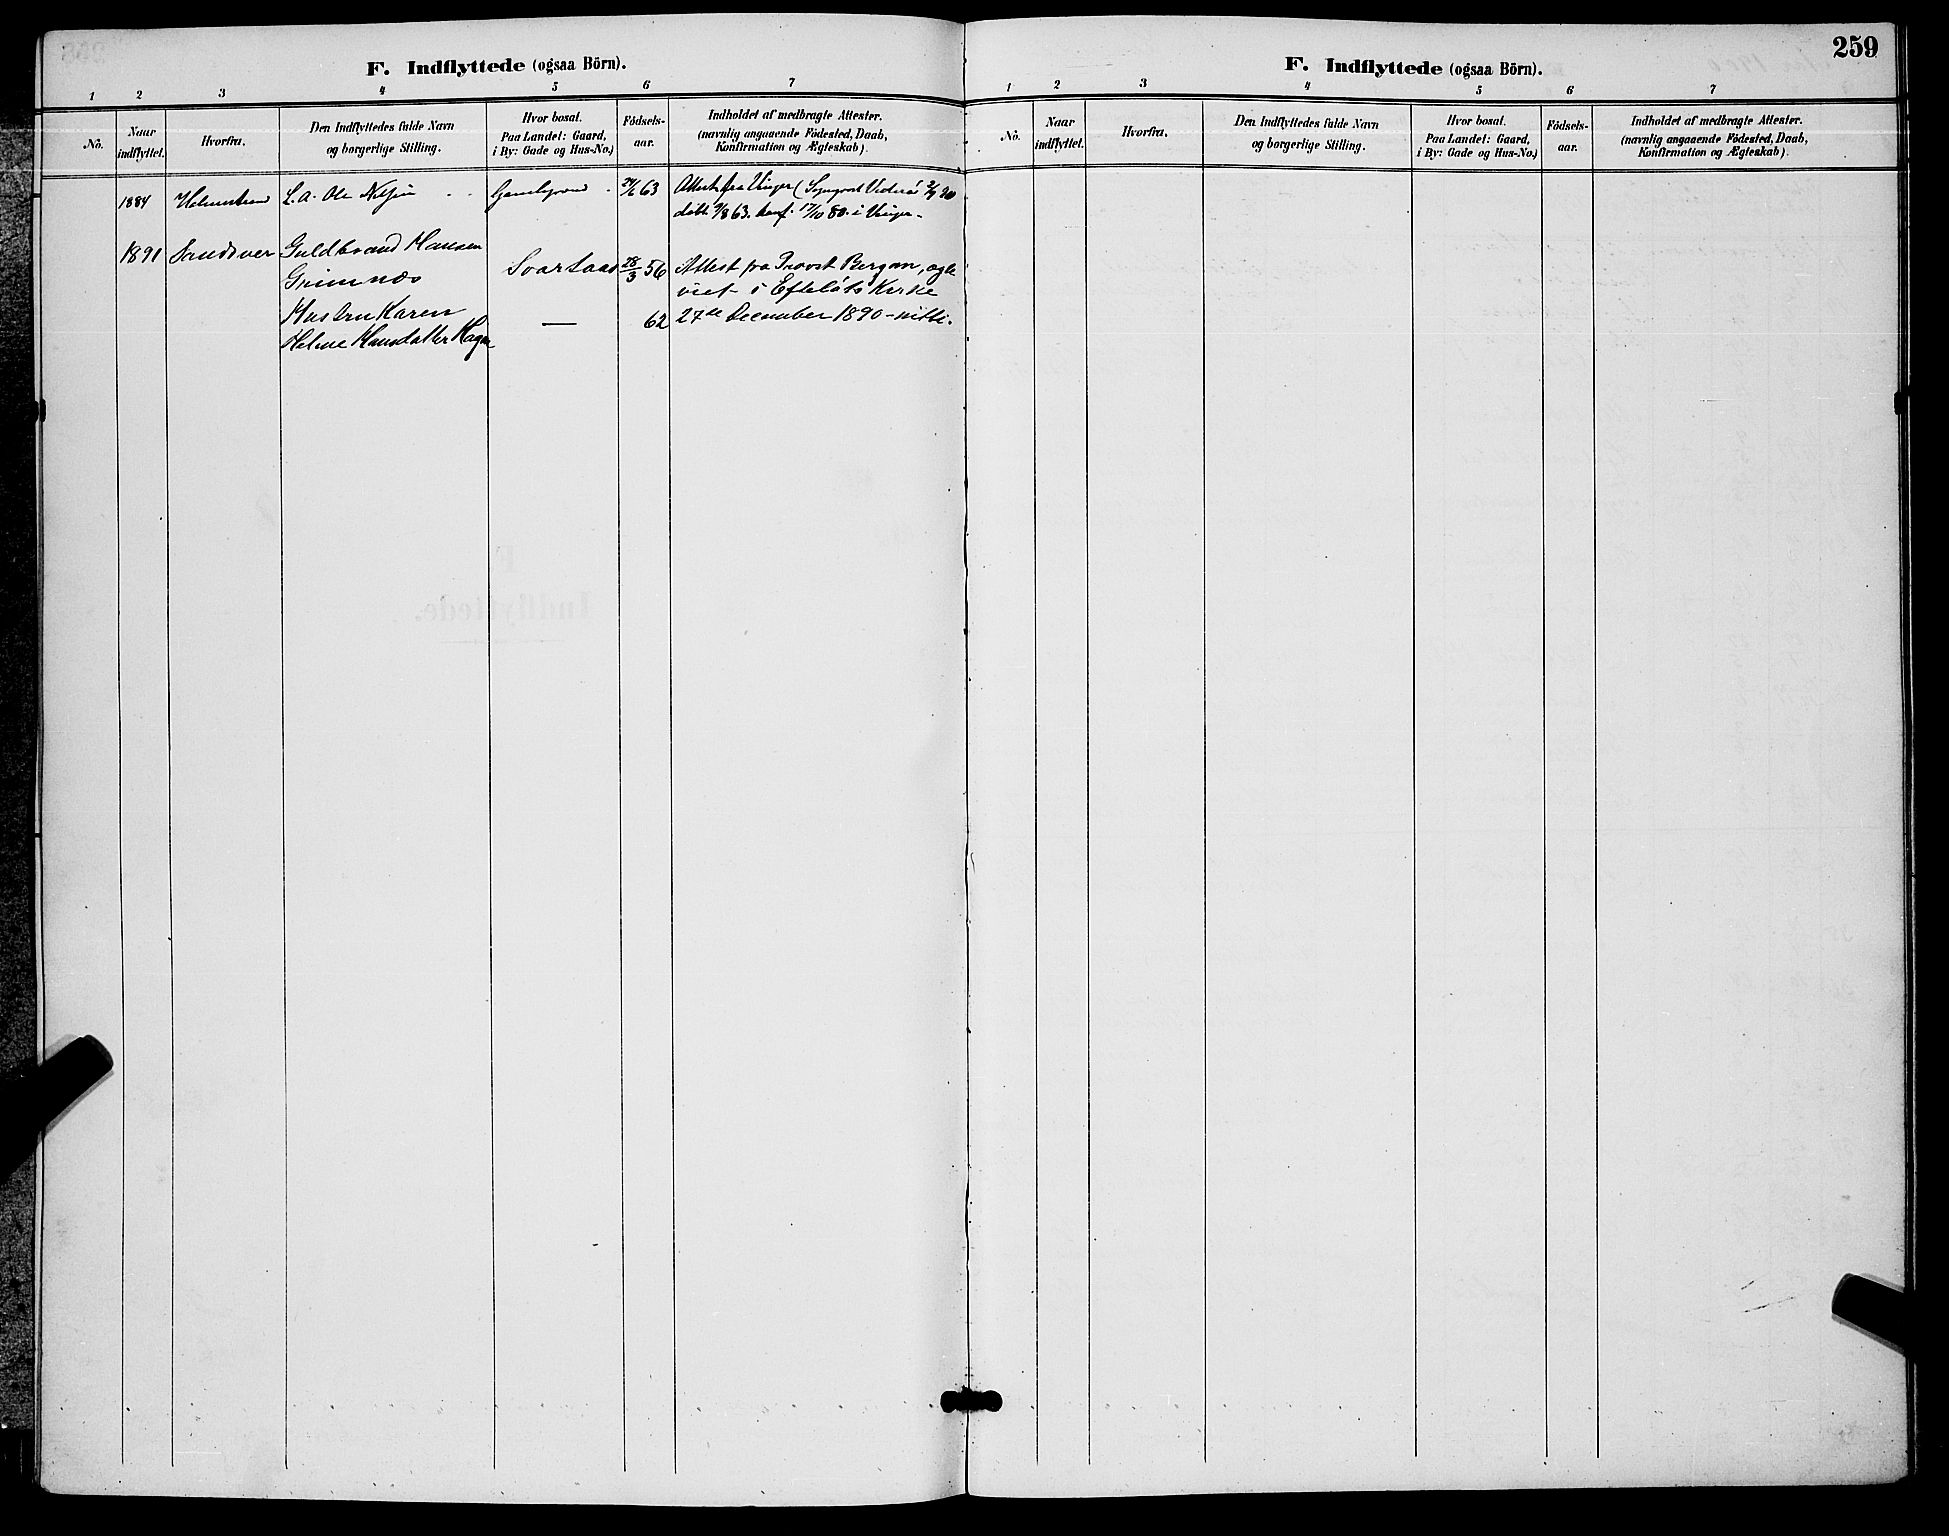 F. Indflyttede (ogsaa Börn).
1 2 3 4 5 6 7
No. Naar indflyttet. Hvorfra. Den Indflyttedes fulde Navn og borgerlige Stilling. Hvor bosat. Paa Landet: Gaard, i By: Gade og Hus-No.) Födsels-aar. Indholdet af medbragte Attester. (navnlig angaaende Födested, Daab, Konfirmation og Ægteskab).
1884 Holmestrand L. A. Ole 63 Attest fra Vinger (Sogneprest
døbt 63. konf. 17/10 80. i Vinger.
1891 Sandsver Guldbrand Hansen
Grimnæs Svartaas 28/3 56 Attest fra Provst Bergan, ægte
viet i Efteløts Kirke
Hustru Karen — 62 27de December 1890-nitti.
Helene Hansdatter Hagen
259
F. Indflyttede (ogsaa Börn).
1 2 3 4 5 6 7
No. Naar indflyttet. Hvorfra. Den Indflyttedes fulde Navn og borgerlige Stilling. Hvor bosat. Paa Landet: Gaard, i By: Gade og Hus-No.) Födsels-aar. Indholdet af medbragte Attester. (navnlig angaaende Födested, Daab, Konfirmation og Ægteskab).